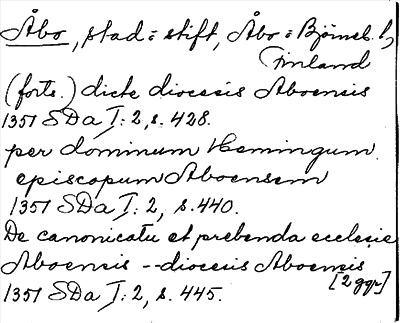 Åbo, stad = stift, Åbo = Björneb. l,
Finland
(forts.) dicte diocesis Aboensis
1351 SDa I: 2, s. 428.
per dominum Hemingum
episcopum Aboensem
1351 SDa I: 2, s. 440.
De canonicatu et prebenda ecclesie
Aboensis -- diocesis Aboensis
[2 ggr]
1351 SDa I: 2, s. 445.